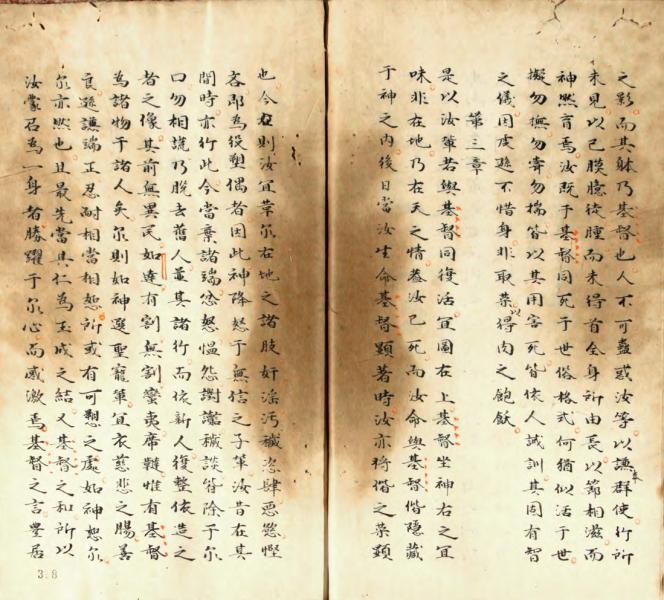 之影而其躰乃基督也人不可蠱或汝等以謙群使行所
未見以己膜臆徒腫而未得首全身所由長以節相滋而
神然育焉汝既于基督同死于世俗格式何猶似活于世
擬勿撫勿嘗勿揣皆以其用害死皆依人誡訓其固有智
之儀因虔遜不惜身非取榮以得肉之飽飫
第三章
是以汝輩若與基督同復活宜圖在上基督坐神右之宜
味非在地乃在天之情蓋汝已死而汝命與基督偕隱藏
于神之內後日當汝生命基督顯著時汝亦將偕之榮顯
也今在則汝宜葬尔在地之諸肢奸淫汚穢恣肆惡慾慳
吝即為役塑偶者因此神降怒于無信之子輩汝昔在其
間時亦行此今當棄諸端忿怒愠怨讟穢談皆除于尔
口勿相謊乃脫去舊人並其諸行而依新人復整依造之
者之像其前無異民如達有割無割蠻夷席韃惟有基督
為諸物于諸人矣尔則如神選聖寵輩宜衣慈悲之腸善
良遜謙端正忍耐相當相恕所或有可愬之處如神恕尔
尔亦然也且最先當具仁為玉成之結又基督之和所以
汝蒙召為一身者勝躍于尔心而感激焉基督之言豐居